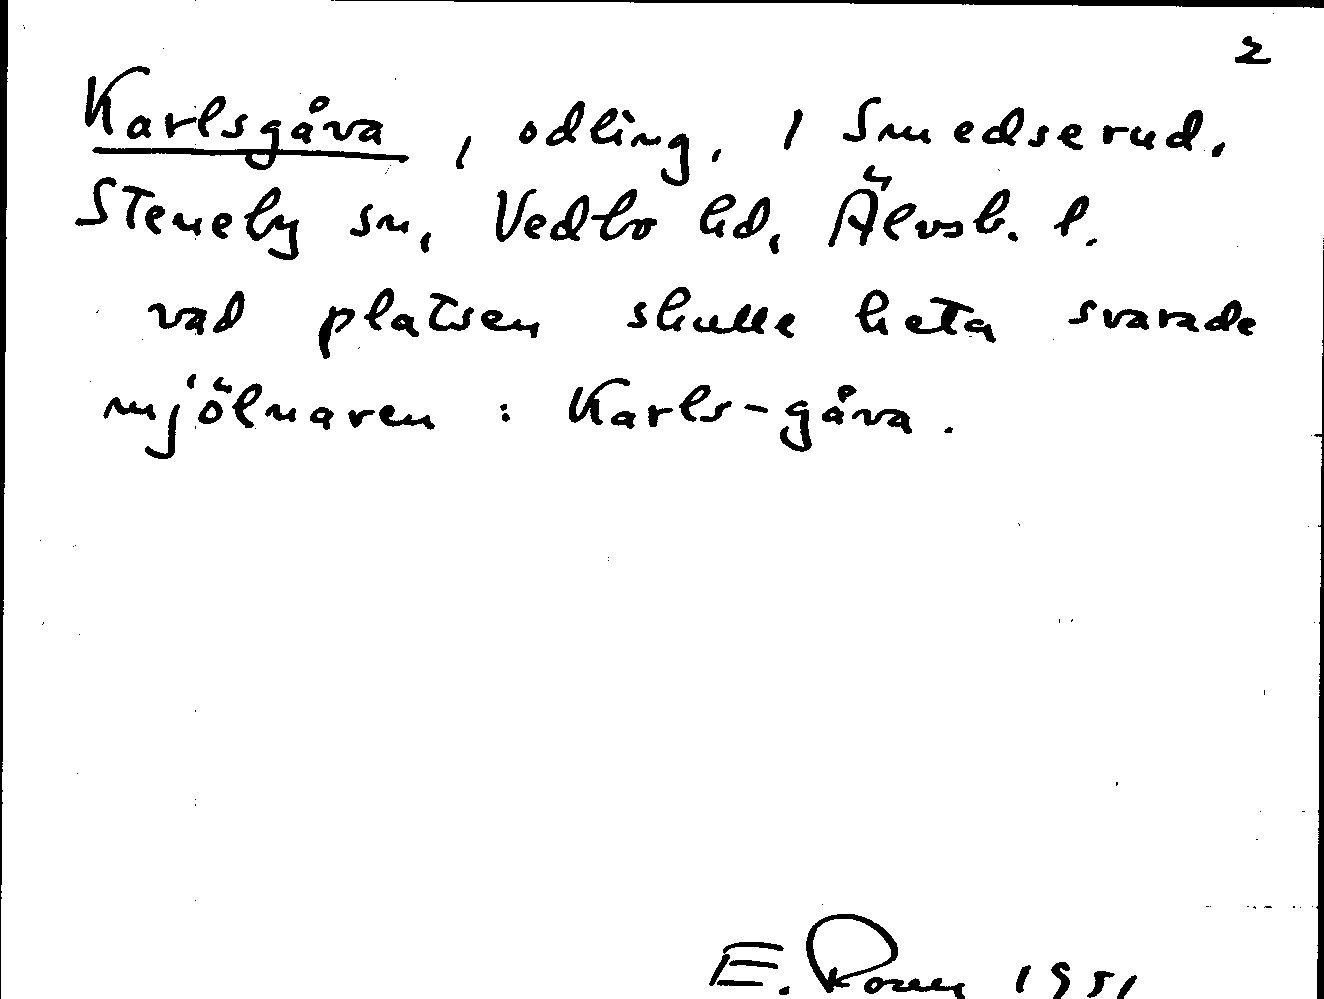 2
Karlsgåva, odling, 1 Smedserud.
Steneby sn, Vedbo hd, Älvsb. l.
vad platsen skulle heta svarade
mjölnaren : Karls-gåva.
E. 1951